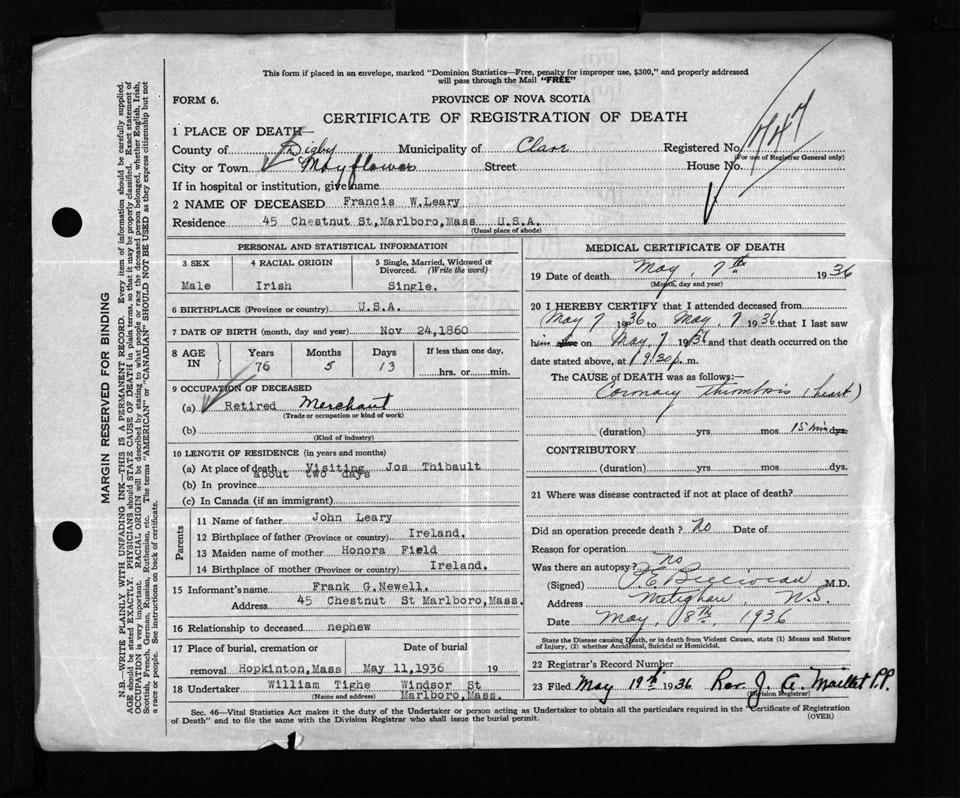 This form if placed in an envelope, marked "Dominion Statistics—Free, penalty for improper use, $300," and properly addressed
will pass through the Mail "FREE"
FORM 6.
PROVINCE OF NOVA SCOTIA
CERTIFICATE OF REGISTRATION OF DEATH
747
1 PLACE OF DEATH—
County of Digby Municipality of Clare Registered No.
(For use of Registrar General only)
City or Town Mayflower Street House No.
If in hospital or institution, give name
2 NAME OF DECEASED Francis W.Leary
Residence 45 Chestnut St,Marlboro,Mass U.S.A.
(Usual place of abode)
PERSONAL AND STATISTICAL INFORMATION
3 SEX 4 RACIAL ORIGIN 5 Single, Married, Widowed or Divorced. (Write the word)
Male Irish Single.
6 BIRTHPLACE (Province or country) U.S.A.
7 DATE OF BIRTH (month, day and year) Nov 24,1860
8 AGE IN Years Months Days If less than one day,
76 5 13 hrs. or min.
9 OCCUPATION OF DECEASED
(a) Retired Merchant
(Trade or occupation or kind of work)
(b)
(Kind of industry)
10 LENGTH OF RESIDENCE (in years and months)
(a) At place of death Visiting Jos Thibault
about two days
(b) In province
(c) In Canada (if an immigrant)
Parents
11 Name of father John Leary
12 Birthplace of father (Province or country) Ireland.
13 Maiden name of mother Honora Field
14 Birthplace of mother (Province or country) Ireland.
15 Informant's name Frank G.Newell.
Address 45 Chestnut St Marlboro,Mass.
16 Relationship to deceased nephew
17 Place of burial, cremation or Date of burial
removal Hopkinton,Mass May 11,1936 19
18 Undertaker William Tighe Windsor St
(Name and address) Marlboro,Mass.
MEDICAL CERTIFICATE OF DEATH
19 Date of death May, 7th 1936
(Month, day and year)
20 I HEREBY CERTIFY that I attended deceased from
May 7 1936 to May, 7 1936 that I last saw
him on May 7 1936 and that death occurred on the
date stated above, at 9.30 p. m.
The CAUSE OF DEATH was as follows:—
Coronary thrombosis (heart)
(duration) yrs. mos 15 min dys.
CONTRIBUTORY
(duration) yrs. mos. dys.
21 Where was disease contracted if not at place of death?
Did an operation precede death? No Date of
Reason for operation
Was there an autopsy? No
(Signed) M.D.
Address Meteghan N.S.
Date May, 8th, 1936
State the Disease causing Death, or in death from Violent Causes, state (1) Means and Nature
of Injury, (2) whether Accidental, Suicidal or Homicidal.
22 Registrar's Record Number
23 Filed May 19th 1936 Rev. J. A. Maillet P.P.
(Division Registrar)
Sec. 46—Vital Statistics Act makes it the duty of the Undertaker or person acting as Undertaker to obtain all the particulars required in the "Certificate of Registration
of Death" and to file the same with the Division Registrar who shall issue the burial permit.
(OVER)
MARGIN RESERVED FOR BINDING
N.B.—WRITE PLAINLY WITH UNFADING INK—THIS IS A PERMANENT RECORD. Every item of information should be carefully supplied.
AGE should be stated EXACTLY. PHYSICIANS should STATE CAUSE OF DEATH in plain terms, so that it may be properly classified. Exact statement of
OCCUPATION is very important. RACIAL ORIGIN will be described by stating to what people or race the deceased person belonged, whether English, Irish,
Scottish, French, German, Russian, Ruthenian, etc. The terms "AMERICAN" or "CANADIAN" SHOULD NOT BE USED as they express citizenship but not
a race or people. See instructions on back of certificate.